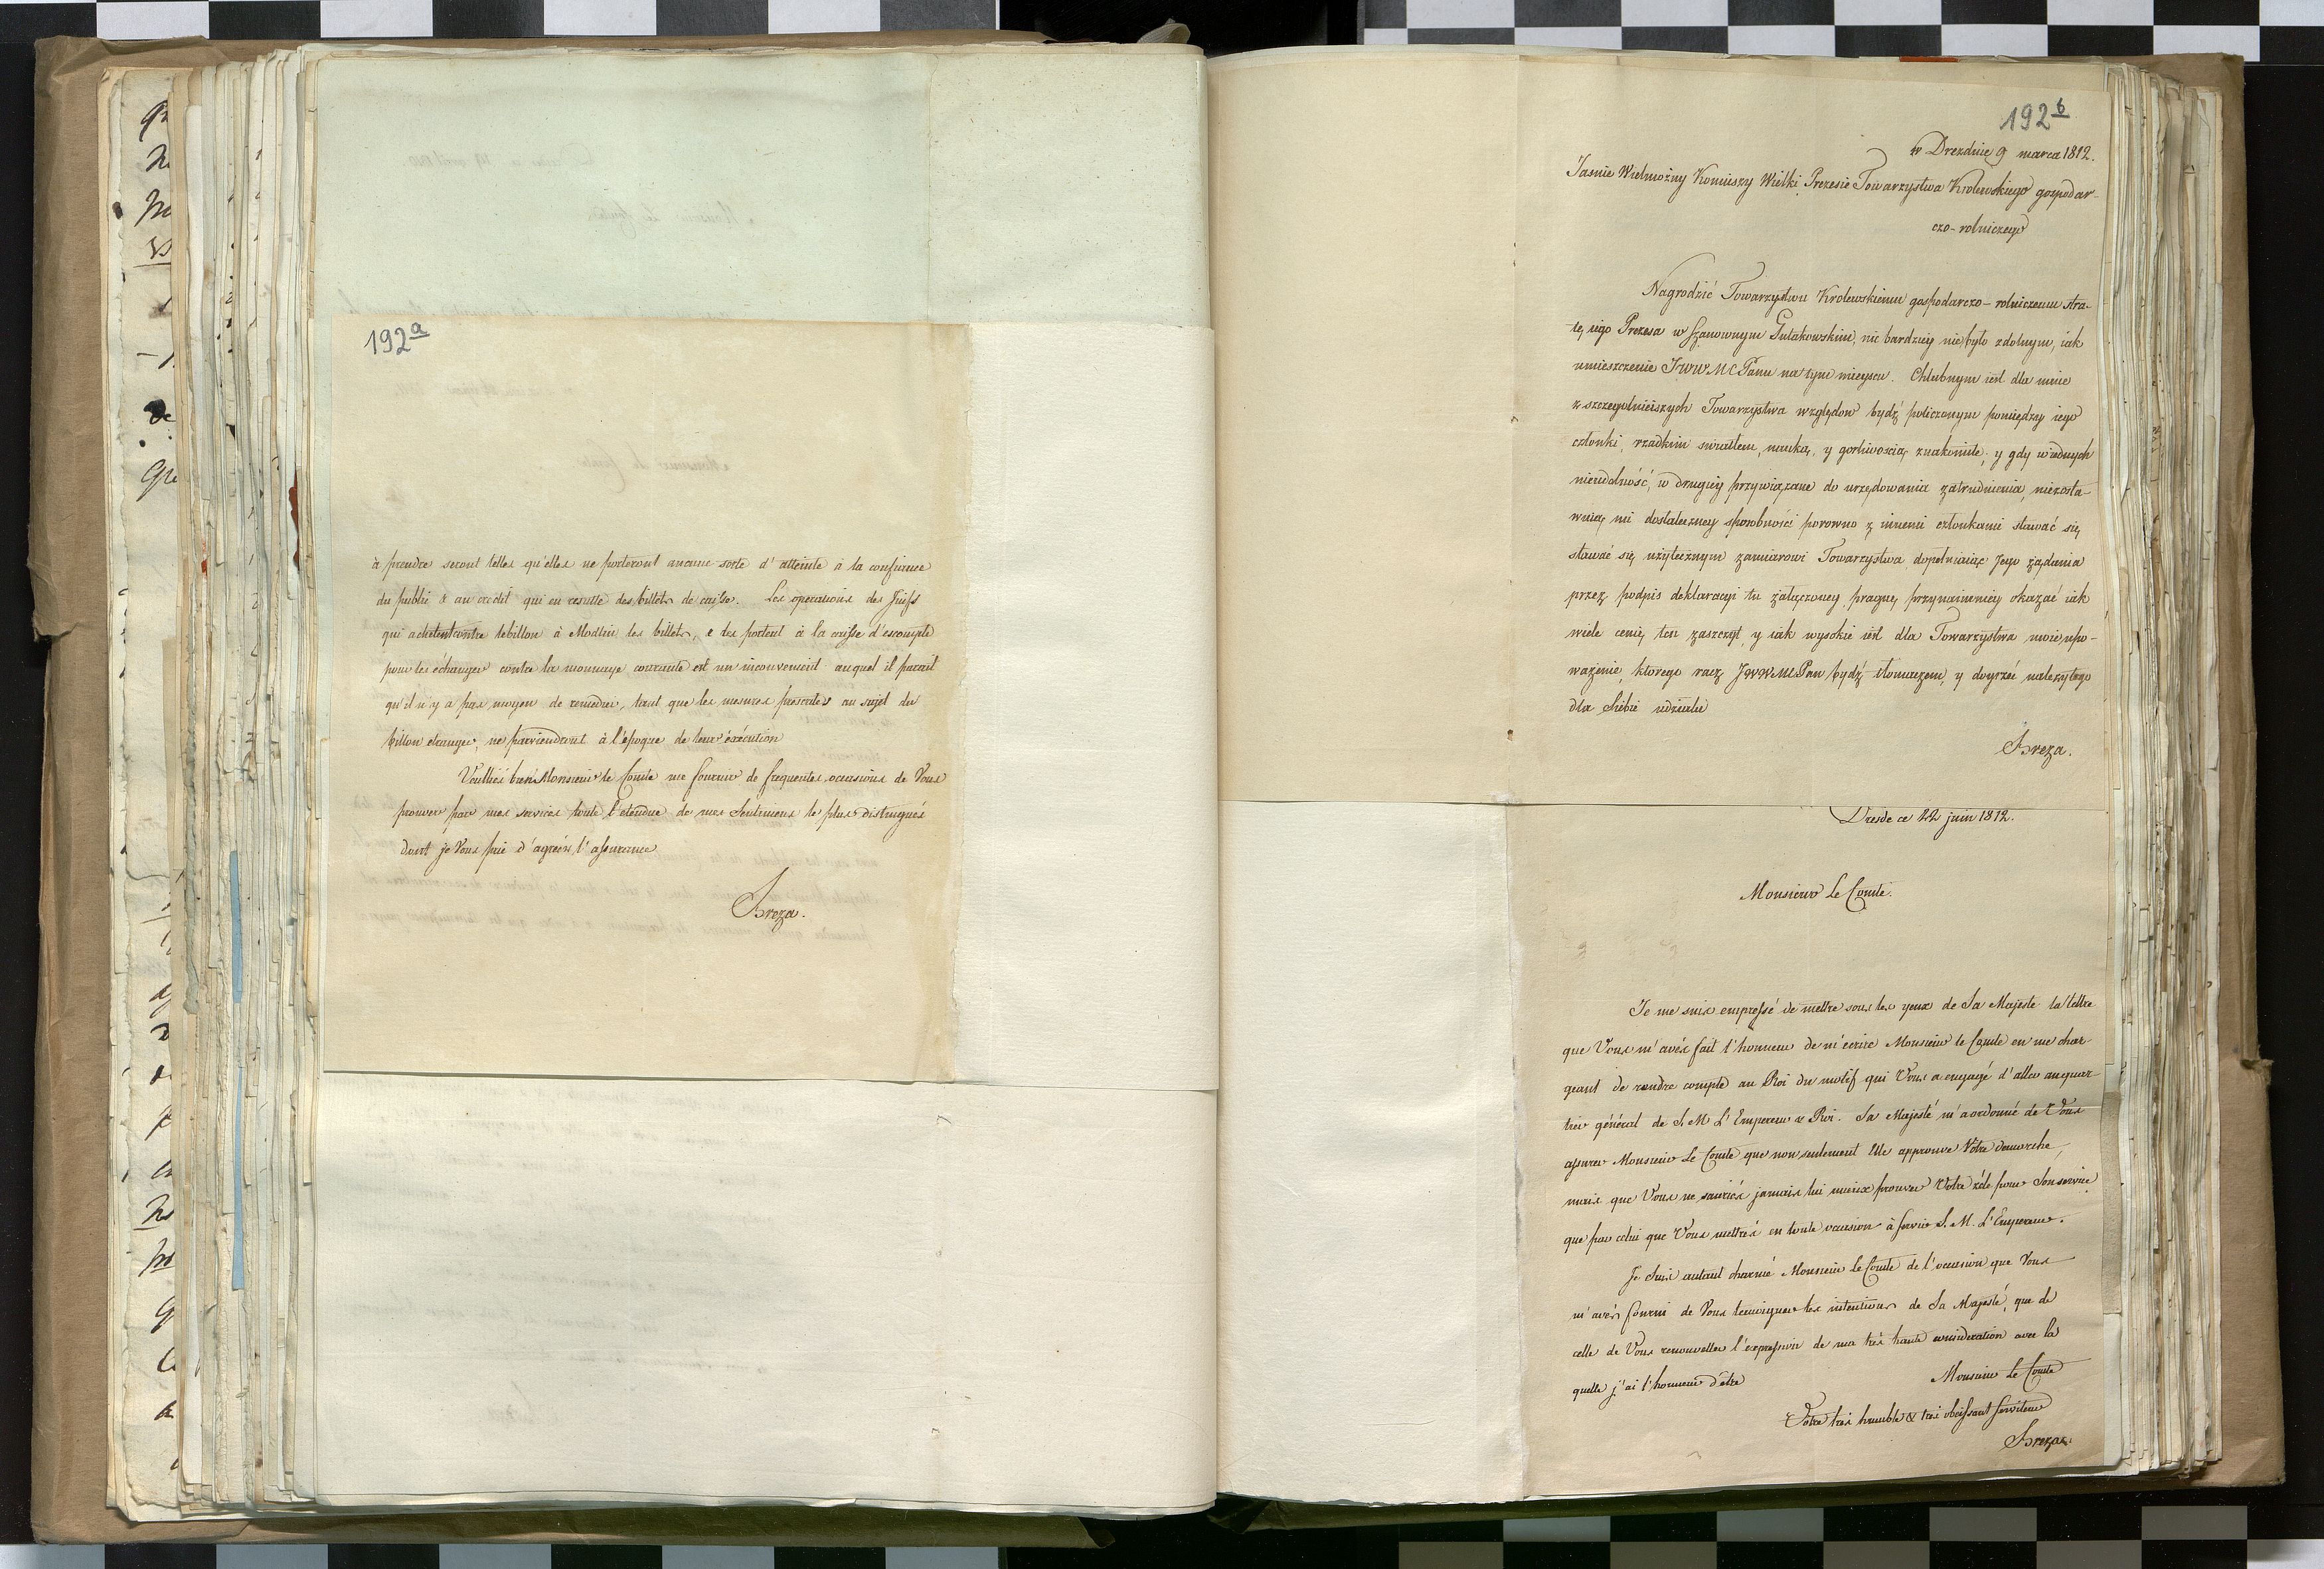 192a
à prendre seront telles qu'elles ne porteront aucune sorte d'atteinte à la confience
du public & au credit qui en resulte des billets de caisse. Les operations des Juifs
qui achetent contre le billon à Modlin les billets, e les portent à la caisse d'escompte
pour les échanger contre la monnaye courrante est un inconvenient auquel il parait
qu'il n'y a pas moyen de remedier, tant que les mesures prescrites au sujet du
billon etranger, ne parviendront à l'époque de leur éxécution
Veulliés bien Monsieur le Comte me fournir de frequentes occasions de Vous
prouver par mes services toute l'etendue de mes Sentimens le plus distingués
dont je Vous prie d'agréér l'assurance
Breza.
192b
w Dreznie 9 marca 1812.
Jasnie Wielmożny Koniuszy Wielki Prezesie Towarzystwa Krolewskiego gospodar-
czo-rolniczego
Nagrodzić Towarzystwu Krolewskiemu gospodarczo-rolniczemu stra-
tę iego Prezesa w Szanownym Gutakowskim, nic bardziey nie było zdolnym, iak
umieszczenie JWWMCPana na tym mieyscu. Chlubnym iest dla mnie
z szczegolnieiszych Towarzystwa względow bydź policzonym pomiędzy iego
członki, rzadkim swiatłem, nauką, y gorliwoscią znakomite; y gdy w iednych
nieudolność, w drugiey przywiązane do urzędowania zatrudnienia, niezosta-
wuią mi dostateczney sposobności porowno z innemi członkami stawać się
stawać się użytecznym zamiarowi Towarzystwa, dopełniaiąc Jego żądania
przez podpis deklaracyi tu załączoney, pragnę przynaimniey okazać iak
wiele cenię ten zaszczyt, y iak wysokie iest dla Towarzystwa moie upo-
ważenie, ktorego racz JWWMCPan bydź tłomaczem, y doyrzéć należytego
dla Siebie udziału
Breza.
Dresde ce 22 juin 1812.
Monsieur Le Comte.
Je me suis empressé de mettre sous les yeux de Sa Majesté la lettre
que Vous m'avés fait l'honneur de m'écrire Monsieur le Comte en me char-
geant de rendre compte au Roi du motif qui Vous a engagé d'aller au quar-
tier général de S. M. L'Empereur & Roi. Sa Majesté m'a ordonné de Vous
assurer Monsieur Le Comte que non seulement Elle approuve Votre demarche,
mais que Vous ne sauriés jamais lui mieux prouver Votre zéle pour Son service
que par celui que Vous mettrés en toute occasion à servir S. M. L'Empereur.
Je Suis autant charmé Monsieur Le Comte de l'occasion que Vous
m'avés fourni de Vous temoigner les intentions de Sa Majesté, que de
celle de Vous renouveller l'expression de ma très haute consideration avec la
quelle j'ai l'honneur d'être
Monsieur Le Comte
Votre très humble & très obeissant Serviteur
Breza.